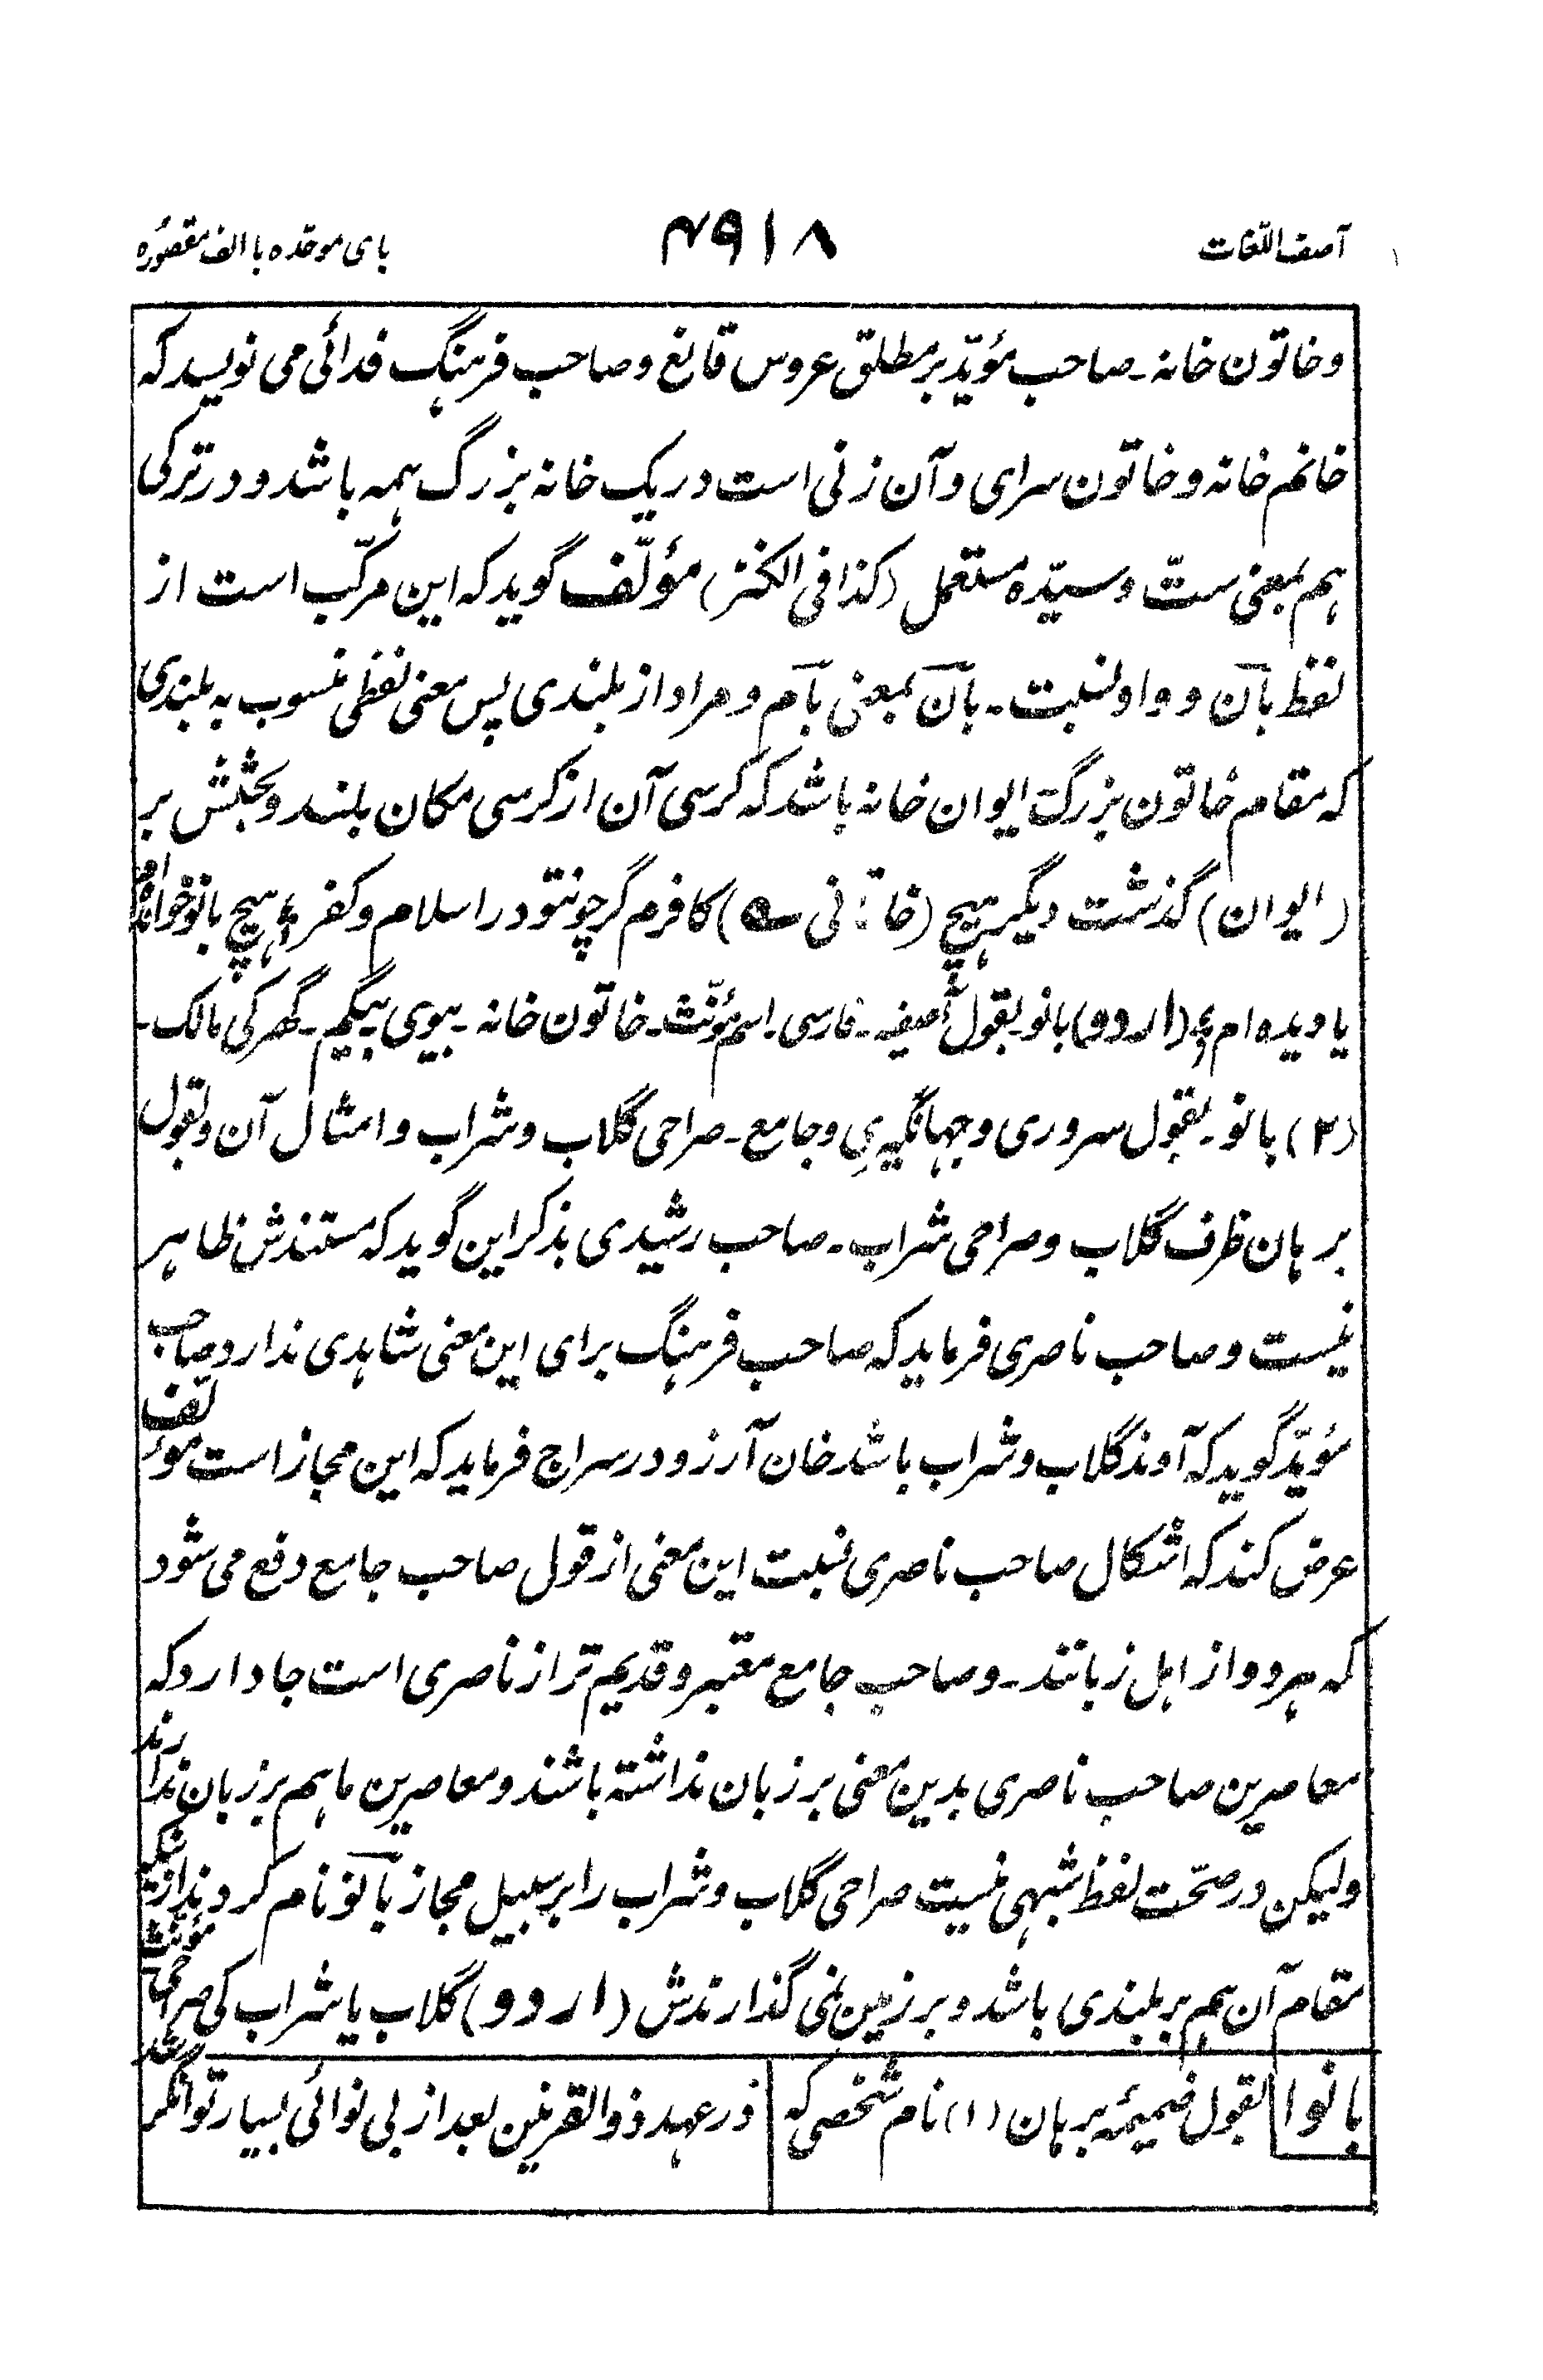 آصف اللّغات
۴۹۱۸
بای موحّده با الف مقصورہ
و خاتون خانہ ۔ صاحب مؤیّد بر مطلق عروس قانع و صاحب فرہنگ فدائی می نویسد کہ
خانم خانہ و خاتون سرای و آن زنی است در یک خانہ بزرگ ہمہ باشد و در ترکی
ہم بمعنی ستّ و سیّدہ مستعمل (کذافی الکنز) مؤلّف گوید کہ این مرکّب است از
لفظ بآن و واو نسبت ۔ بآن بمعنی بآم و مراد از بلندی پس معنی لفظی منسوب بہ بلندی
کہ مقام خاتون بزرگ ایوان خانہ باشد کہ کرسی آن از کرسی مکان بلند و بحثش بر
(ایوان) گذشت دیگر ہیچ (خاقانی ؎) کافرم گر چو نتو در اسلام و کفر ؛ ہیچ بانو خواندہ ام
یا دیدہ ام ؛ (اردو) بانو بقول آصفیہ ۔ فارسی ۔ اسم مؤنّث ۔ خاتون خانہ ۔ بیوی بیگم ۔ گھر کی مالک ۔
(۲) بانو ۔ بقول سروری و جہانگیری و جامع ۔ صراحی گلاب و شراب و امثال آن و بقول
برہان ظرف گلاب و صراحی شراب ۔ صاحب رشیدی بذکر این گوید کہ مستندش ظاہر
نیست و صاحب ناصری فرماید کہ صاحب فرہنگ برای این معنی شاہدی ندارد و صاحب
مؤیّد گوید کہ آوند گلاب و شراب باشد خان آرزو در سراج فرماید کہ این مجاز است مؤلّف
عرض کند کہ اشکال صاحب ناصری نسبت این معنی از قول صاحب جامع دفع می شود
کہ ہر دو از اہل زبانند ۔ و صاحب جامع معتبر و قدیم تر از ناصری است جا دارد کہ
معاصرین صاحب ناصری بدین معنی بر زبان نداشتہ باشند و معاصرین ما ہم بر زبان ندارند
ولیکن در صحّت لفظ شبہی نیست صراحی گلاب و شراب را بر سبیل مجاز بآنو نام کردند ازینکہ
مقام آن ہم بر بلندی باشد و بر زمین نمی گذارندش (اردو) گلاب یا شراب کی صراحی مؤنّث
بانوا بقول ضمیمۂ برہان (۱) نام شخصی کہ
در عہد ذوالقرنین بعد از بی نوائی بسیار توانگر شد